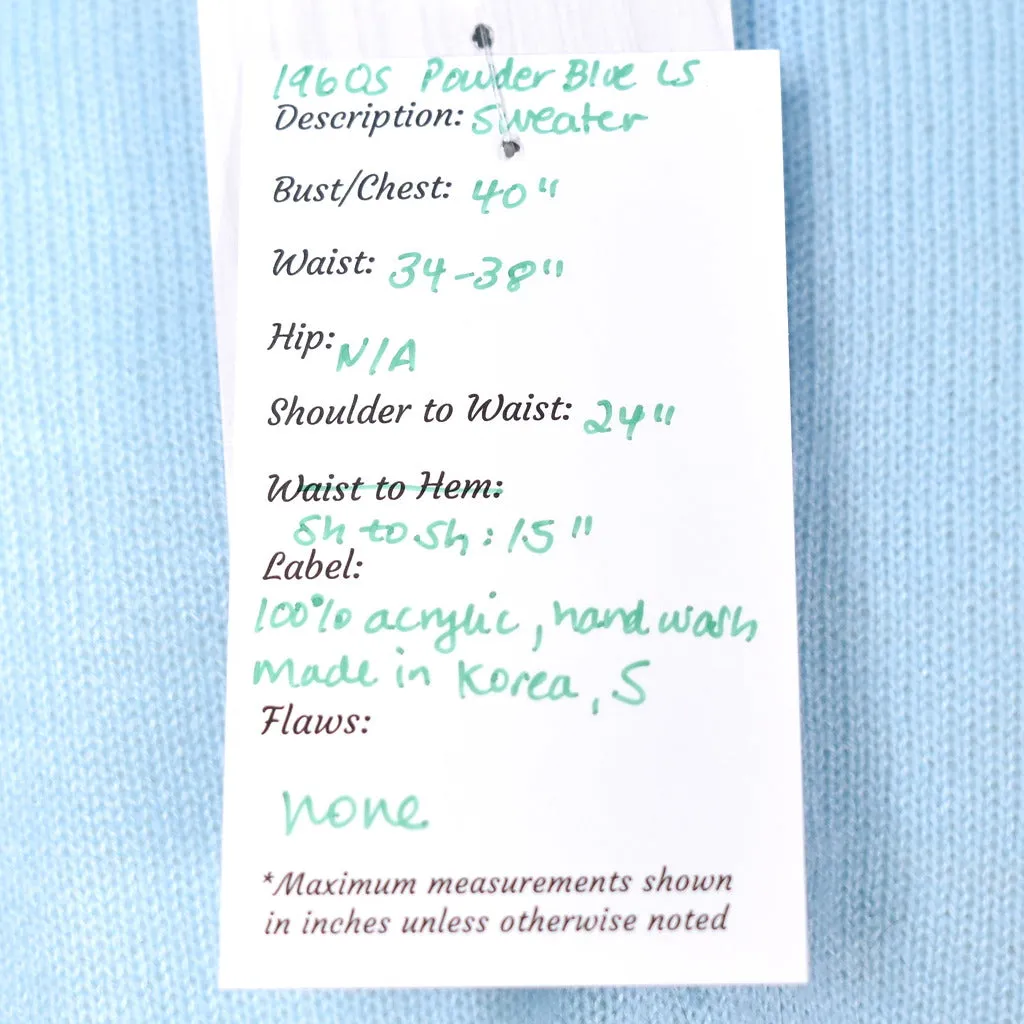 1960s Powder Blue LS
Description: Sweater
Bust/Chest: 40"
Waist: 34-38"
Hip: N/A
Shoulder to Waist: 24"
Waist to Hem:
Sh to Sh: 15"
Label:
100% acrylic, hand wash
Made in Korea, S
Flaws:
none
*Maximum measurements shown
in inches unless otherwise noted